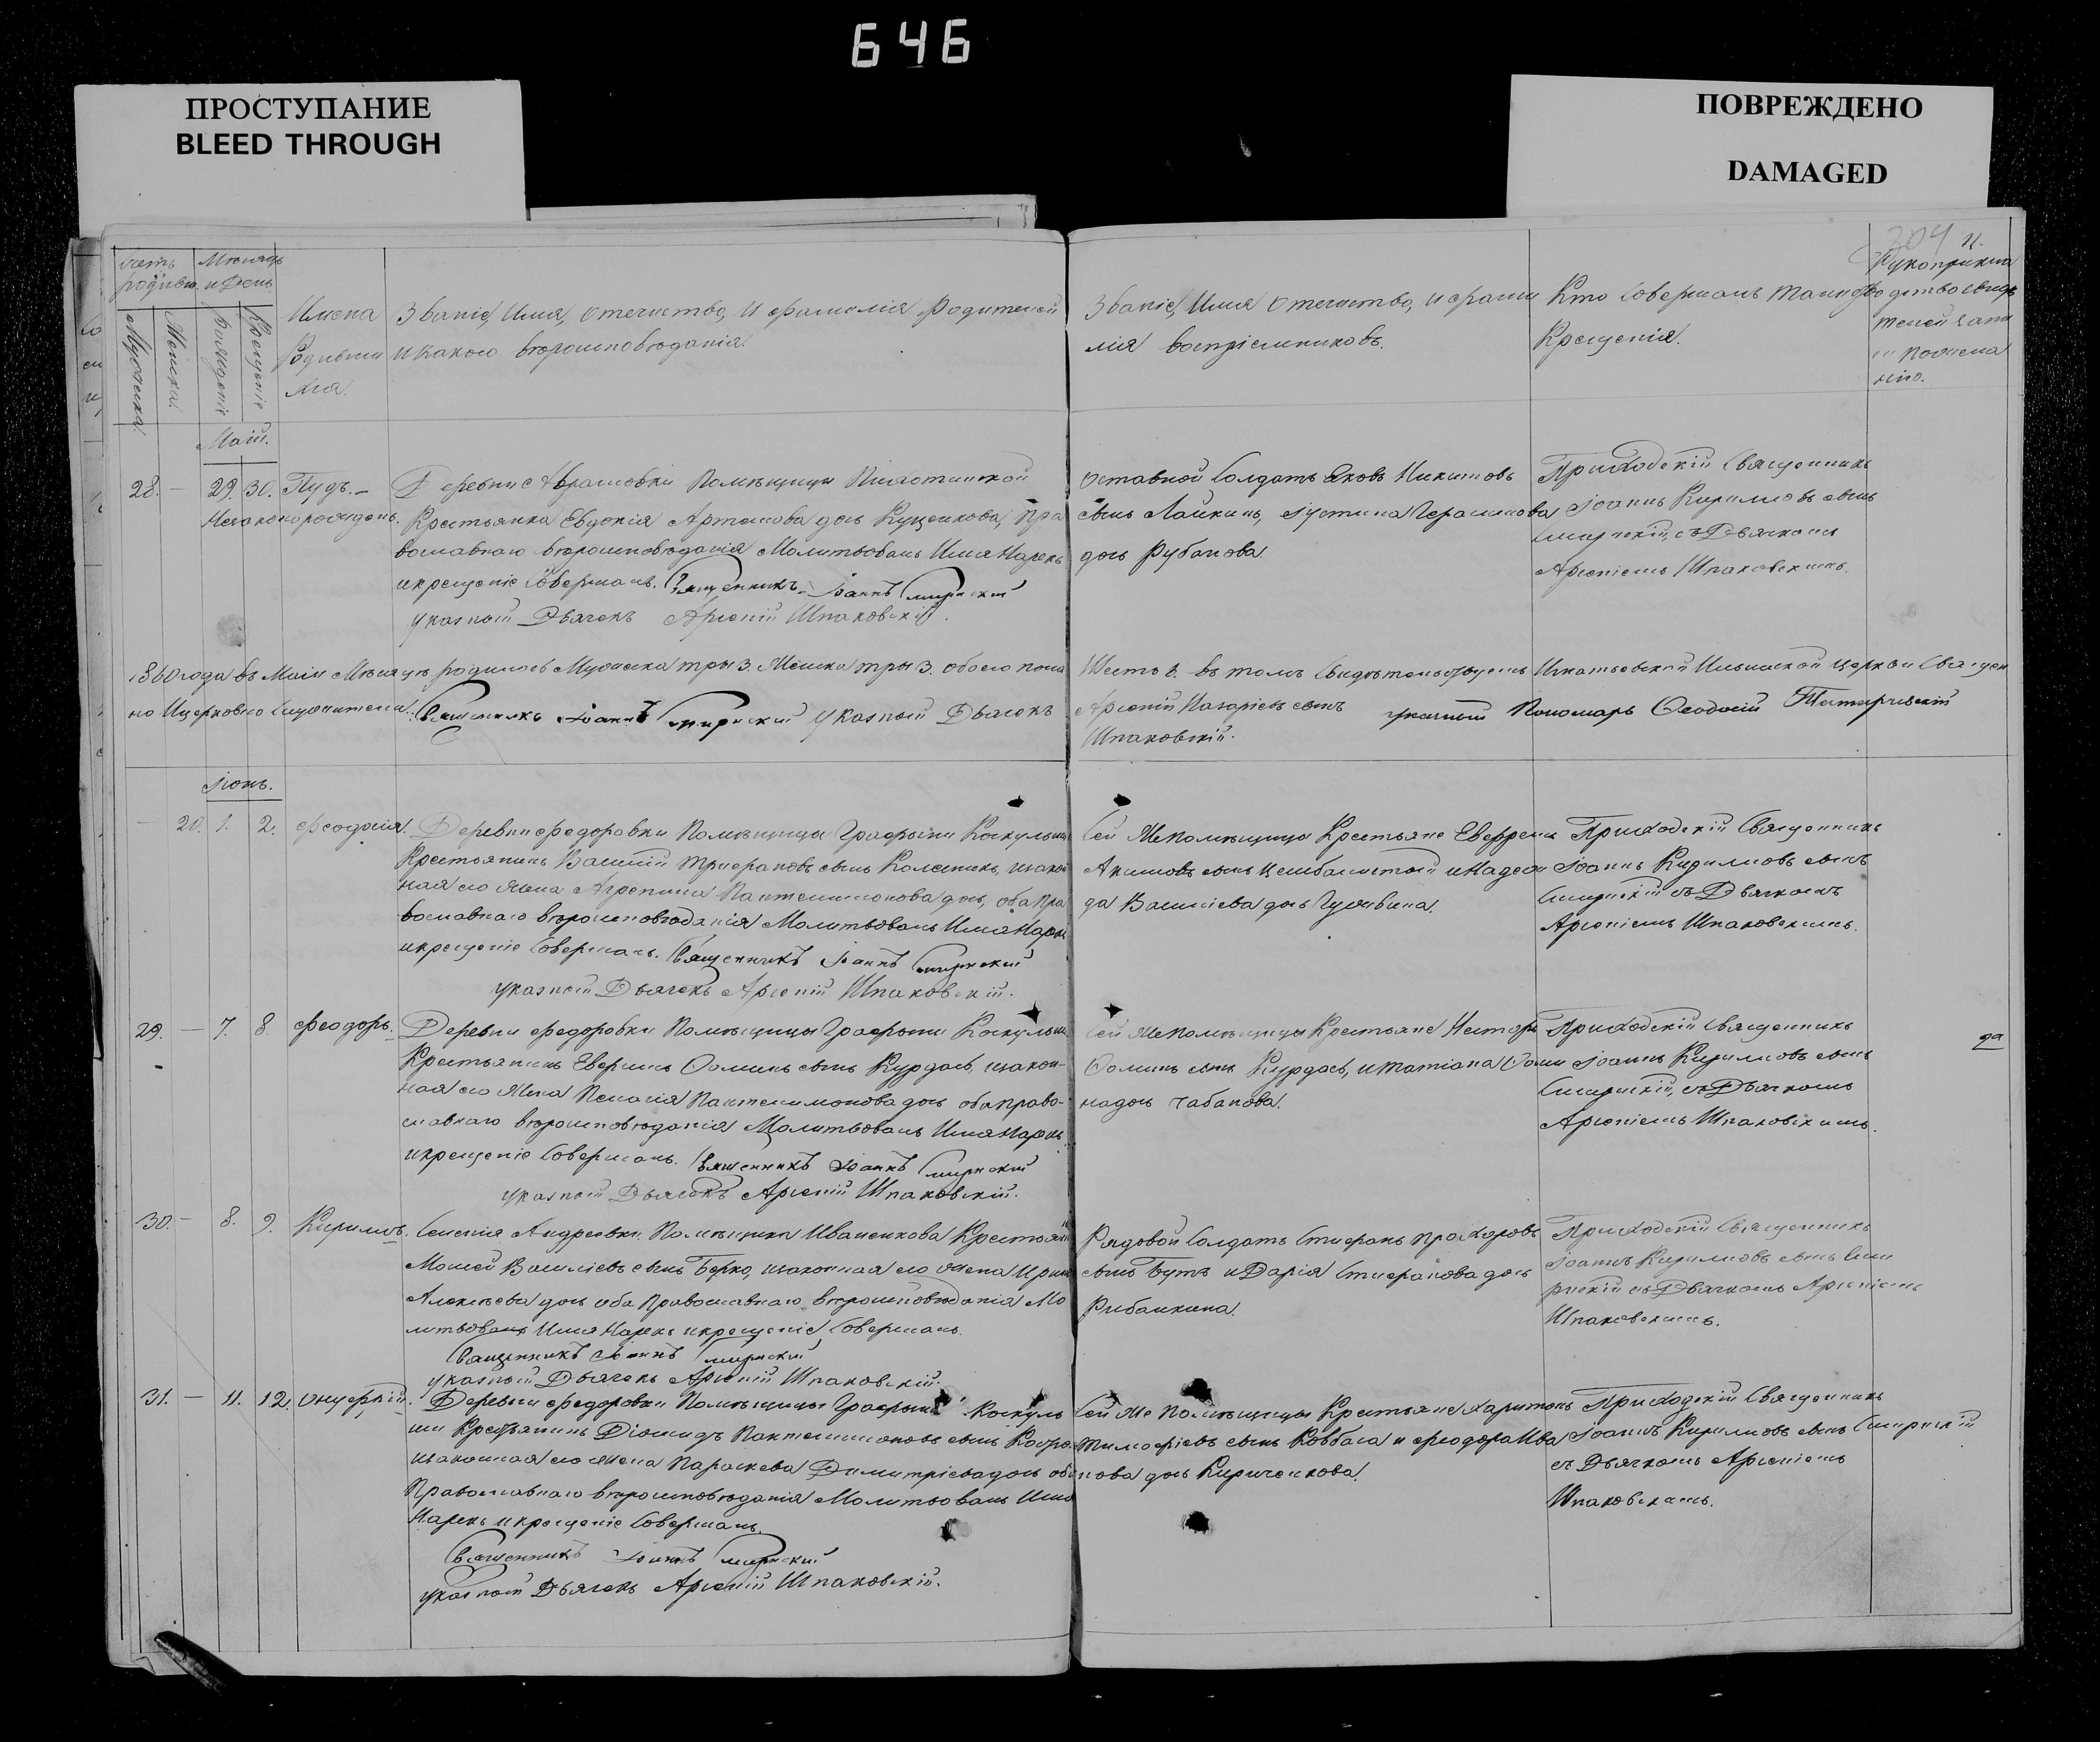 646
ПРОСТУПАНИЕ
BLEED THROUGH
ПОВРЕЖДЕНО
DAMAGED
304
11.
Мѣсяцъ
и День
Мужеска.
Женска.
Рожденіе
Крещеніе
Имена
Родивши
хся.
Званіе, Имя, отечество, и фамилія Родителей
и какого вѣроисповѣданія.
Званіе, Имя отечество, и фами
лія воспріемниковъ.
Кто Совершалъ таинство
Крещенія.
Маій.
28. — 29. 30. Пудъ. —
Незаконорожденъ.
Деревни Абрамовки Помѣщицы
Крестьянка Евдокія Артемова дочь Куценкова, Пра
вославнаго вѣроисповѣданія Молитвовалъ Имя Нарекъ
и крещеніе Совершалъ. Священникъ Іоаннъ Смирнскій
указной Дьячекъ Арсеній Шпаковскій.
Оставной Солдатъ Яковъ Никитовъ
сынъ Лайкинъ, Іустина Герасимова
дочь Рубанова.
Приходскій Священникъ
Іоаннъ Кириловъ сынъ
Смирнскій, съ Дьячкомъ
Арсеніемъ Шпаковскимъ.
1860 года въ Маіи Мѣсяцѣ родилось Мужеска три 3. Женска три 3. обоего пола
Шесть 6. въ томъ Свидѣтельствуемъ Игнатьевской Ильинской церкви Священ
но и церковно Служители. Священникъ Іоаннъ Смирнскій указной Дьячекъ
Арсеній Назаріевъ сынъ
Шпаковскій.
указный Пономарь Ѳеодосій
Іюнь.
— 20. 1. 2. Феодосія.
Деревни Федоровки Помѣщицы Графыни Коскуль
Крестьянинъ Василій Трифановъ сынъ Колесникъ, и закон
ная его жена Агрепина Пантелимонова дочь, оба Пра
вославнаго вѣроисповѣданія Молитвовалъ Имя Нарекъ
и крещеніе Совершалъ. Священникъ Іоаннъ Смирнскій
указной Дьячекъ Арсеній Шпаковскій.
Сей же Помѣщицы Крестьяне Евфремъ
Акимовъ сынъ Цимбалистой и Надеж
да Василіева дочь
Приходскій Священникъ
Іоаннъ Кириловъ сынъ
Смирнскій съ Дьячкомъ
Арсеніемъ Шпаковскимъ.
29. — 7. 8. Феодоръ.
Деревни Федоровки Помѣщицы Графыни Коскуль
Крестьянинъ Ѳоминъ сынъ Курдасъ, и закон-
ная его жена Пелагія Пантелимонова дочь оба право-
славнаго вѣроисповѣданія Молитвовалъ Имя Нарекъ
и крещеніе Совершалъ. Священникъ Іоаннъ Смирнскій
указной Дьячекъ Арсеній Шпаковскій.
Сей же Помѣщицы Крестьяне Несторъ
Ѳоминъ сынъ Курдасъ, и Татіана Ѳоми
на дочь Чабанова.
Приходскій Священникъ
Іоаннъ Кириловъ сынъ
Смирнскій, съ Дьячкомъ
Арсеніемъ Шпаковскимъ.
30. — 8. 9. Кириллъ.
Селенія Андреевки Помѣщика Иваненкова Крестьянинъ
Моисей Василіевъ сынъ Берко, и законная его жена Ирина
Алексѣева дочь оба Православнаго вѣроисповѣданія Мо
литвовалъ Имя Нарекъ и крещеніе Совершалъ.
Священникъ Іоаннъ Смирнскій
указной Дьячекъ Арсеній Шпаковскій.
Рядовой Солдатъ Стифанъ Прохоровъ
сынъ Бутъ и Дарія Стифанова дочь
Рибалкина.
Приходскій Священникъ
Іоаннъ Кириловъ сынъ Сми
рнскій съ Дьячкомъ Арсеніемъ
Шпаковскимъ.
31. — 11. 12. Онуфрій.
Деревни Федоровки Помѣщицы Графыни Коскуль
Крестьянинъ Діомидъ Пантелимоновъ сынъ
и законная его жена Параскева Димитріева дочь оба
Православнаго вѣроисповѣданія Молитвовалъ Имя
Нарекъ и крещеніе Совершалъ.
Священникъ Іоаннъ Смирнскій
указной Дьячекъ Арсеній Шпаковскій.
Сей же Помѣщицы Крестьяне Харитонъ
Тимофіевъ сынъ Ковбаса и Феодора Ива
нова дочь Кириченкова.
Приходскій Священникъ
Іоаннъ Кириловъ сынъ Смирнскій
съ Дьячкомъ Арсеніемъ
Шпаковскимъ.